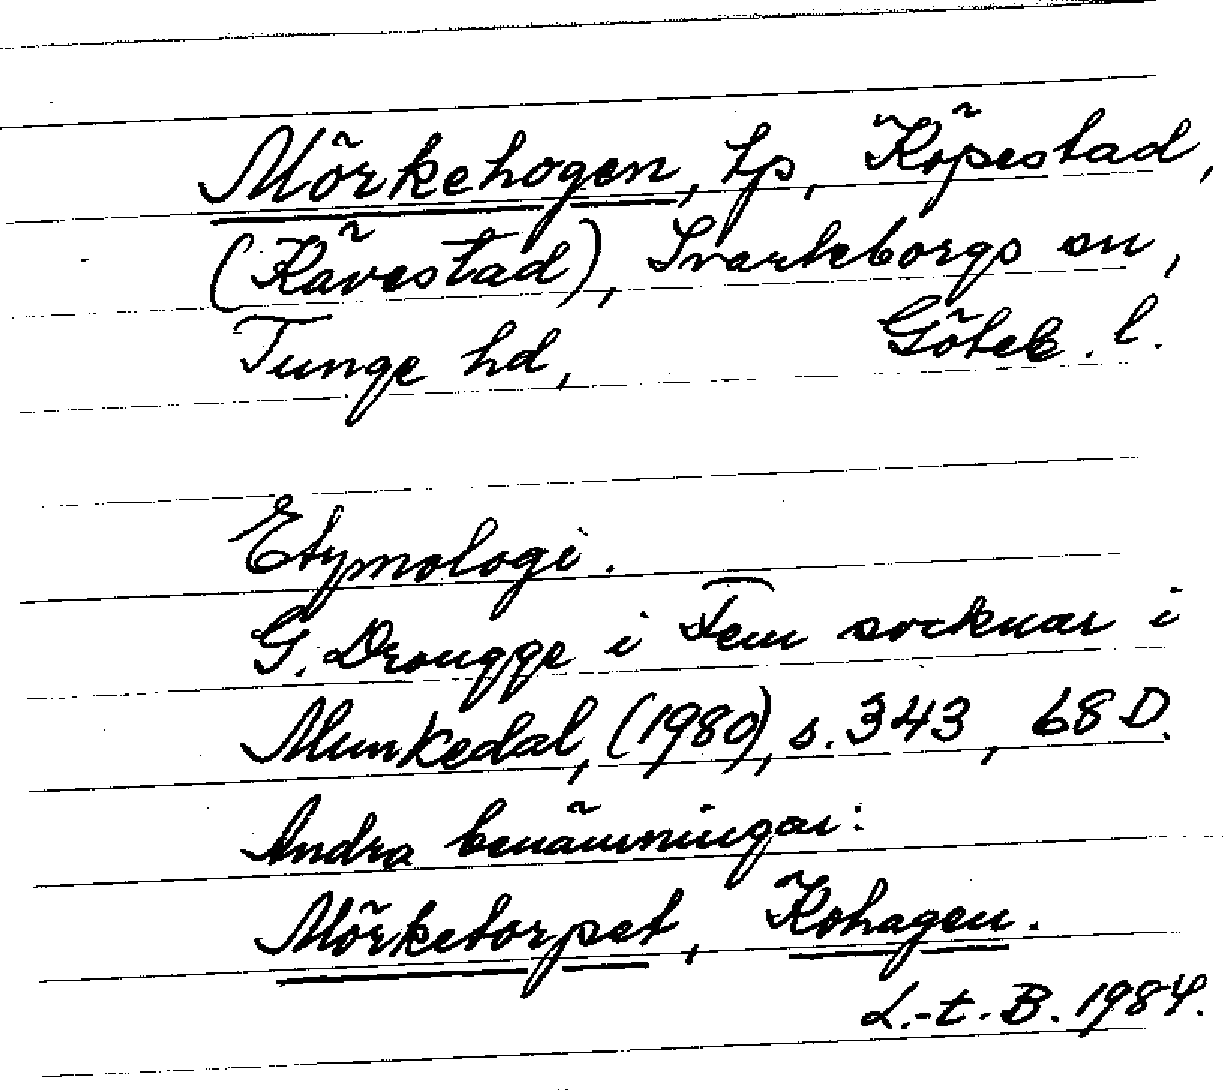 Mörkehogen, tp, Köpestad,
(Kävestad), Svarteborgs sn,
Tunge hd, Göteb. l.
Etymologi.
G. Drougge i Fem socknar i
Munkedal, (1980), s. 343, 68 D.
Andra benämningar:
Mörketorpet, Kohagen.
L.-t. B. 1984.